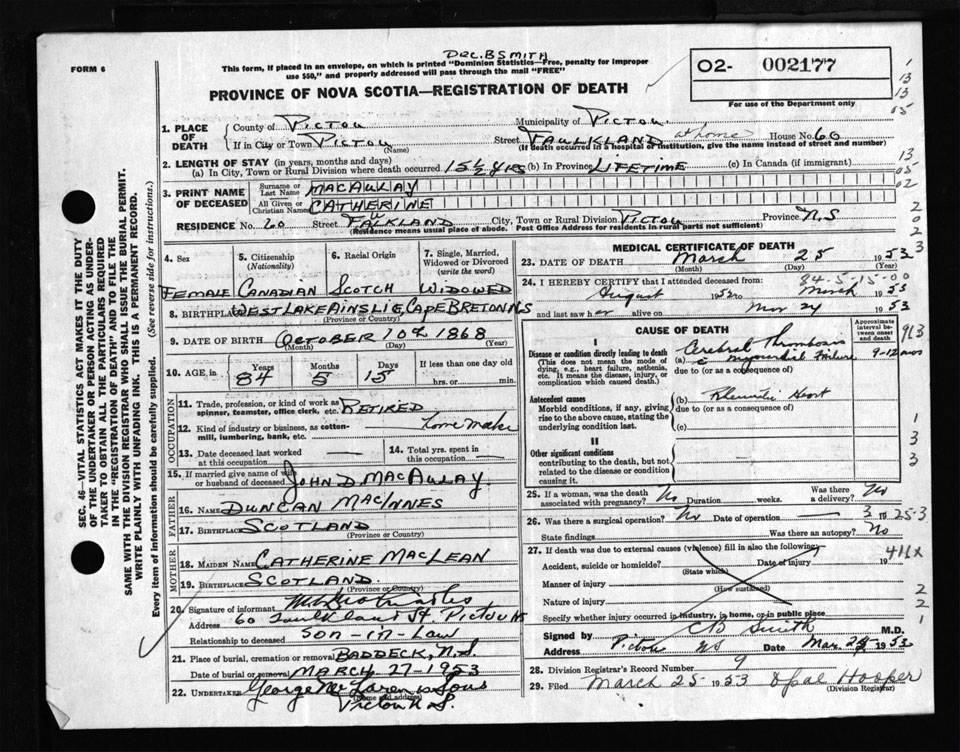 DRC.B SMITH
FORM 6
This form, if placed in an envelope, on which is printed "Dominion Statistics—Free, penalty for improper
use $50," and properly addressed will pass through the mail "FREE"
02- 002177
For use of the Department only
PROVINCE OF NOVA SCOTIA—REGISTRATION OF DEATH
1. PLACE OF DEATH
County of PICTOU Municipality of PICTOU
If in City or Town PICTOU (Name) Street FAULKLAND at home House No. 60
(If death occurred in a hospital or institution, give the name instead of street and number)
2. LENGTH OF STAY (in years, months and days)
(a) In City, Town or Rural Division where death occurred 15½ YRS (b) In Province LIFETIME (c) In Canada (if immigrant)
3. PRINT NAME OF DECEASED
Surname or Last Name MACAULAY
All Given or Christian Names CATHERINE
RESIDENCE No. 60 Street FALKLAND City, Town or Rural Division PICTOU Province N.S
(Residence means usual place of abode. Post Office Address for residents in rural parts not sufficient)
4. Sex 5. Citizenship (Nationality) 6. Racial Origin 7. Single, Married, Widowed or Divorced (write the word)
FEMALE CANADIAN SCOTCH WIDOWED
8. BIRTHPLACE WEST LAKE AINSLIE, CAPE BRETON NS
(Province or Country)
9. DATE OF BIRTH OCTOBER 10th 1868
(Month) (Day) (Year)
10. AGE, in Years 84 Months 5 Days 15 If less than one day hrs. or min.
OCCUPATION
11. Trade, profession, or kind of work as spinner, teamster, office clerk, etc. RETIRED
12. Kind of industry or business, as cotton-mill, lumbering, bank, etc. home maker
13. Date deceased last worked at this occupation — 14. Total yrs. spent in this occupation —
15. If married give name of wife or husband of deceased JOHN D. MACAULAY
FATHER
16. NAME DUNCAN MACINNES
17. BIRTHPLACE SCOTLAND
(Province or Country)
MOTHER
18. MAIDEN NAME CATHERINE MACLEAN
19. BIRTHPLACE SCOTLAND.
(Province or Country)
20. Signature of informant
Address 60 Faulkland St. Pictou NS
Relationship to deceased SON-IN-LAW
21. Place of burial, cremation or removal BADDECK, N.S.
Date of burial or removal MARCH-27-1953
22. UNDERTAKER George McLaren & Sons
(Name and address)
Pictou N.S.
MEDICAL CERTIFICATE OF DEATH
23. DATE OF DEATH March 25 1953
(Month) (Day)
84-5-15-00
24. I HEREBY CERTIFY that I attended deceased from:
August 1952 to March 1953
and last saw her alive on Mar 24 1953
CAUSE OF DEATH
Approximate interval between onset and death
I
Disease or condition directly leading to death
(This does not mean the mode of dying, e.g., heart failure, asthenia, etc. It means the disease, injury, or complication which caused death.)
(a) Cerebral Thrombosis
c myocardial Failure 9-12 mos
due to (or as a consequence of)
Antecedent causes
Morbid conditions, if any, giving rise to the above cause, stating the underlying condition last.
(b) Rheumatic Heart
due to (or as a consequence of)
(c)
II
Other significant conditions
contributing to the death, but not related to the disease or condition causing it.
25. If a woman, was the death associated with pregnancy? No Duration weeks. Was there a delivery? No
26. Was there a surgical operation? No Date of operation — 3 to 25-3
State findings Was there an autopsy? No
27. If death was due to external causes (violence) fill in also the following:
Accident, suicide or homicide? (State which) Date of injury 19
411X
Manner of injury (How sustained)
Nature of injury
Specify whether injury occurred in industry, in home, or in public place
Signed by CB Smith M.D.
Address Pictou NS Date Mar. 24 1953
28. Division Registrar's Record Number 9
29. Filed March 25-1953 Opal Hooper
(Division Registrar)
SEC. 46—VITAL STATISTICS ACT MAKES IT THE DUTY
OF THE UNDERTAKER OR PERSON ACTING AS UNDER-
TAKER TO OBTAIN ALL THE PARTICULARS REQUIRED
IN THE "REGISTRATION OF DEATH" AND TO FILE THE
SAME WITH THE DIVISION REGISTRAR WHO SHALL ISSUE THE BURIAL PERMIT.
WRITE PLAINLY WITH UNFADING INK. THIS IS A PERMANENT RECORD.
Every item of information should be carefully supplied. (See reverse side for instructions.)
1
13
13
05
13
05
02
2
0
2
3
913
1
3
3
2
2
1